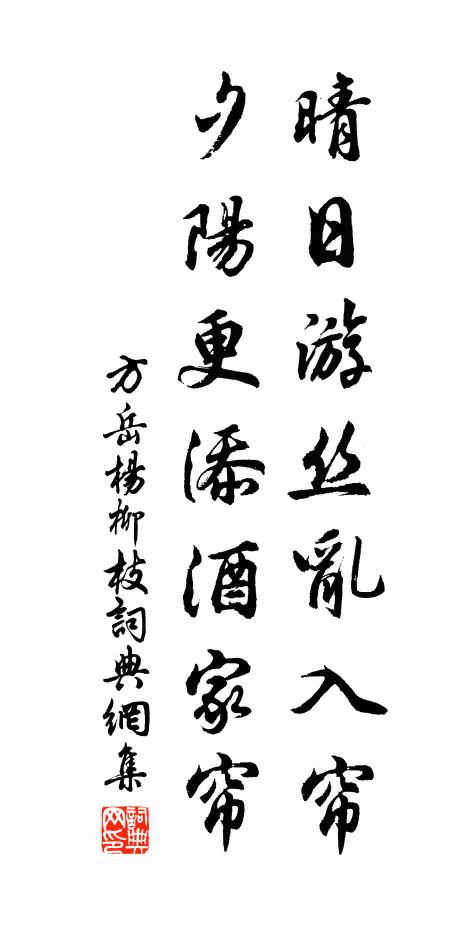 晴日游丝亂入帘
夕陽更添酒家帘
方岳楊柳枝詞典網集
詞典网印